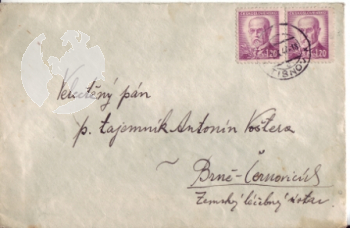 1.20 1.20
TIŠNOV
Velectěný pán
p. tajemník Antonín Vostera
~ Brně-Černovicích
Zemský léčebný ústav